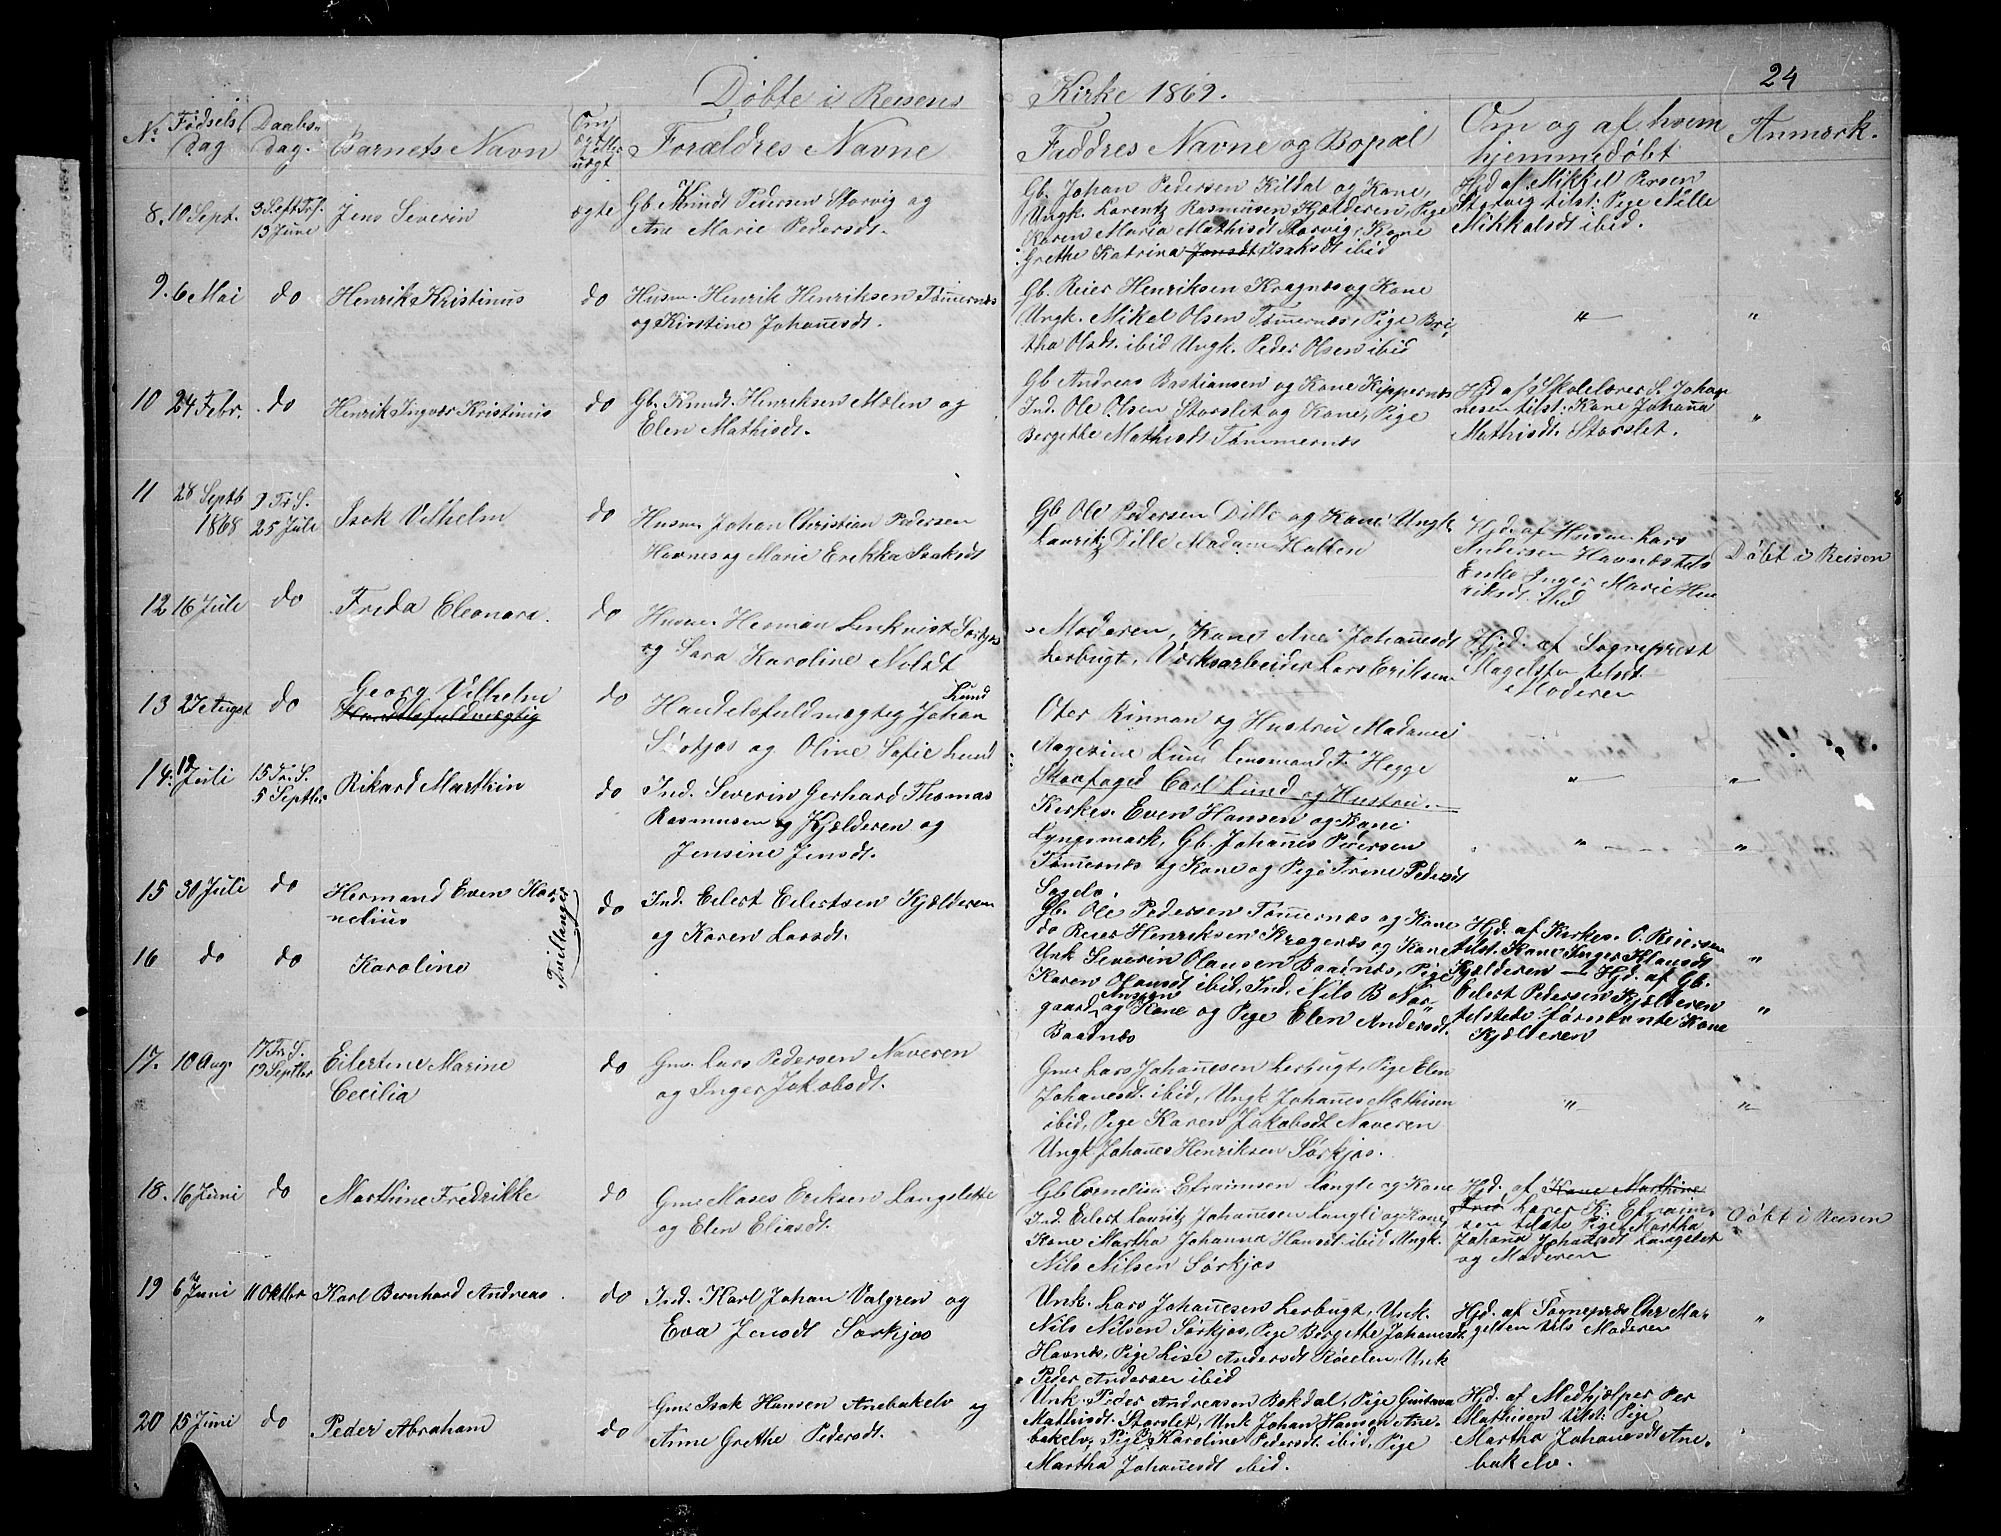 Døbte i Reisens Kirke 1869.
24
No. Fødsels Dag
Daabs- dag.
Barnets Navn
Om ægte eller uægt
Forældres Navne
Faddres Navne og Bopæl
Om og af hvem hjemmedøbt
Anmærk.
8. 10 Sept. 3 Sept Tr f.
13 June
Jens Severin
ægte
Gb. Knudt Pedersen Storvig og
Ane Marie Pedersdt.
Gb. Johan Pedersen Kildal og Kone,
Ungk. Lorentz Rasmusen Kjælderen, Pige
Karen Maria Mathisdt Storvig, Kone
Grethe Katrina Jonsdt Isaksdt ibid
Hjd af Mikkel Persen
Storvig tilst: Pige Nille
Mikkalsdt ibid.
9. 6 Mai do Henrik Kristinus do
Husm. Henrik Henriksen Tømernæs
og Kirstine Johanesdt.
Gb. Reier Henriksen Kragnæs og Kone
Ungk. Mikel Olsen Tømernæs, Pige Bri-
tha Olsdt. ibid Ungk. Peder Olsen ibid
" "
10 24 Febr. do Henrik Ingvar Kristinus do
Gb. Knudt Henriksen Mælen og
Elen Mathisdt.
Gb Andreas Bastiansen og Kone Kippernæs
Ind. Ole Olsen Storslet og Kone, Pige
Bergethe Mathisdt Tømmernæs
Hjd af Skolelærer S. Johan
nesen tilst: Kone Johana
Mathisdt. Storslet.
"
11 28 Septb 9 Tr. S.
1868 25 Juli
Isak Vilhelm
do
Husm. Johan Christian Pedersen
Havnes og Marie Erikka Isaksdt
Gb Ole Pedersen Dille og Kone Ungk.
Lauritz Dille Madam Holten
Hjd. af Husm. Lars
Andersen Havnæs tils
Enke Inger Marie Hen
riksdt. ibid
Døbt i Reisen
12 16 Juli do Freda Eleonora. do
Husm. Herman Lenkvist Sørkjos
og Sara Karoline Nolsdt
Moderen, Kone Ane Johanesdt
Lerbugt, Værksarbeider Lars Eriksen
Hjd. af Sogneprest
Magelsen tilst
Moderen
13 27 August do
Georg Vilhelm
Handelsfuldmægtig
do
Handelsfuldmægtig Johan Lund
Søkjos og Oline Sofie Lund
Oter Rinnan og Hustru Madame
Aagesine Lund Lensmand F. Hegge
Skovfoged Carl Lund og Hustru.
" "
14. 12 Juli 15 Tr. S.
5 Septbr
Rikard Marthin
do
Ind. Severin Gerhard Thomas
Rasmusen og Kjælderen og
Jensine Jensdt.
Kirkes. Even Hansen og Kone
Lyngsmark, Gb. Johanes Pedersen
Tømernæs og Kone og Pige Trine Pedersdt
Sagelv.
" "
15 30 Juli do Hermand Even Kor-
nelius
Tvillinger
do
Ind. Eilert Eilertsen Kjælderen
og Karen Larsdt.
Gb. Ole Pedersen Tømernæs og Kone
do Reier Henriksen Kragenæs og Kone
Unk Severin Olausen Baadnæs, Pige
Karen Olausdt ibid, Ind. Nils B Nor-
gaard Ansjøn og Kone og Pige Elen Andersdt.
Baadnæs
Hjd. af Kirkes. O. Reiersen
tilst. Kone Inger Klausdt
Kjælderen — Hjd. af Gb.
Eilert Pedersen Kjælderen
tilstede førnævnte Kone
Kjælderen
"
16 do do Karoline
"
17. 10 Aug. 17 Tr. S.
19 Septbr
Eilertine Marine
Cecilia
do
Gm. Lars Pedersen Naveren
og Inger Jakobsdt.
Gm. Lars Johanesen Lerbugt, Pige Elen
Johanesdt. ibid, Ungk Johanes Mathisen
ibid, Pige Karen Jakobsdt Naveren
Ungk Johanes Henriksen Sørkjos.
" "
18. 16 Juni do Marthine Fredrikke do
Gm. Moses Eriksen Langslette
og Elen Eliasdt.
Gb Cornelius Efraimsen Langli og Kone
Ind. Eilert Lauritz Johanesen Langli og Kone,
Kone Martha Johanna Hansdt ibid Ungk.
Nils Nilsen Sørkjos
Hjd. af Kone Marthine
Lærer K: Efraim-
sen tilste Pige Martha
Johana Johansdt Langslet
og Moderen
Døbt i Reisen
19 6 Juni 11 Oktbr Karl Bernhard Andreas. do
Ind. Karl Johan Valgren og
Eva Jensdt Sørkjos
Unk. Lars Johanesen Lerbugt, Unk.
Nils Nilsen Sørkjos, Pige Bergette Johanesdt
Havnæs, Pige Lise Andersdt Røeelen, Unk
Peder Andersen ibid
Hjd. af Sognepræs Chr Ma-
gelsen tils Moderen
"
20 15 Juni do Peder Abraham do
Gm. Isak Hansen Anebakelv og
Anne Grethe Pedersdt.
Unk. Peder Andreasen Bakdal, Pige Gustava
Mathisdt. Storslet, Unk Johan Hansen Ane-
bakelv, Pige Karoline Pedersdt. ibid, Pige
Martha Johanesdt ibid.
Hjd. af Medhjælper Per
Mathisen tilst: Pige
Martha Johanesdt Ane-
bakelv.